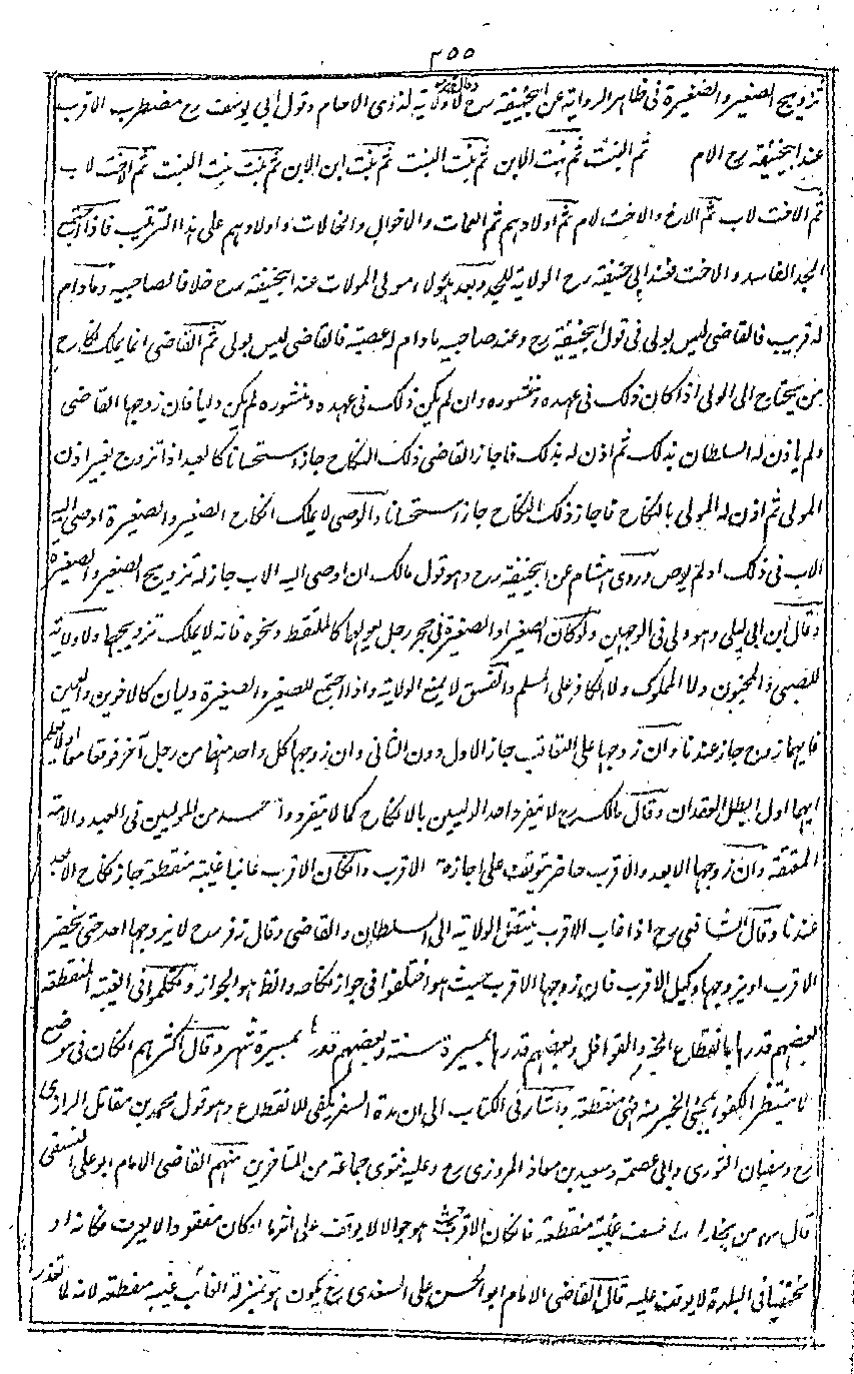 ٣٥٥
تزويج الصغير والصغيرة فى ظاهر الرواية عن ابيحنيفة رح وقال محمد رح لا ولاية لذوى الارحام وقول ابى يوسف رح مضطرب الاقرب
عند ابيحنيفة رح الام ثم البنت ثم بنت الابن ثم بنت البنت ثم بنت ابن الابن ثم بنت بنت البنت ثم الاخت لاب
ثم الاخت لاب ثم الاخ والاخت لام ثم اولادهم ثم العمات والاخوال والخالات واولادهم على هذا الترتيب فاذا اجتمع
الجد الفاسد والاخت فعند ابى حنيفة رح الولاية للجد وبعد هؤلاء مولى الموالات عند ابيحنيفة رح خلافا لصاحبيه ومادام
له قريب فالقاضى ليس بولى فى قول ابيحنيفة رح وعند صاحبيه مادام له عصبة فالقاضى ليس بولى ثم القاضى انما يملك نكاح
من يحتاج الى الولى اذا كان ذلك فى عهده ومنشوره وان لم يكن ذلك فى عهده ومنشوره لم يكن وليا فان زوجها القاضى
ولم ياذن له السلطان بذلك ثم اذن له بذلك فاجاز القاضى ذلك النكاح جاز استحسانا كالعبد اذا تزوج بغير اذن
المولى ثم اذن له المولى بالنكاح فاجاز ذلك النكاح جاز استحسانا والوصى لا يملك انكاح الصغير والصغيرة اوصى اليه
الاب فى ذلك او لم يوص وروى هشام عن ابيحنيفة رح وهو قول مالك ان اوصى اليه الاب جاز له تزويج الصغير والصغيرة
وقال ابن ابى ليلى وهو ولى فى الوجهين ولو كان الصغير او الصغيرة فى حجر رجل يعولها كالملتقط ونحوه فانه لا يملك تزويجها ولا ولاية
للصبى والمجنون ولا المملوك ولا الكافر على المسلم والفسق لا يمنع الولاية واذا اجتمع للصغير والصغيرة وليان كالاخوين والعمين
فايهما زوج جاز عندنا وان زوجها على التعاقب جاز الاول دون الثانى وان زوجها كل واحد منهما من رجل آخر فوقعا معا او لا يعلم
ايهما اول ابطل العقدان وقال مالك رح لا ينفرد احد الوليين بالانكاح كما لا ينفرد واحد من الموليين فى العبد والامة
المعتقة وان زوجها الابعد والاقرب حاضر توقف على اجازة الاقرب وان كان الاقرب غائبا غيبة منقطعة جاز نكاح الابعد
عندنا وقال الشافعى رح اذا غاب الاقرب ينتقل الولاية الى السلطان والقاضى وقال زفر رح لا يزوجها احد حتى يحضر
الاقرب او يزوجها وكيل الاقرب فان زوجها الاقرب حيث هو اختلفوا فى جواز نكاحه والظاهر هو الجواز وتكلموا فى الغيبة المنقطعة
بعضهم قدرها بانقطاع الخبر والقوافل وبعضهم قدرها بمسيرة سنة وبعضهم قدرها بمسيرة شهر وقال اكثرهم ان كان فى موضع
لا ينتظر الكفو لمجئ الخبر منه فهى منقطعة واشار فى الكتاب الى ان مدة السفر يكفى للانقطاع وهو قول محمد بن مقاتل الرازى
رح وسفيان الثورى وابى عصمة وسعيد بن معاذ المروزى رح وعليه فتوى جماعة من المتاخرين منهم القاضى الامام ابو على النسفى
قال رح من بخارا الى نسف غيبة منقطعة فان كان الاقرب جوالا لا يوقف على اثره او كان مفقودا لا يعرف مكانه او
مختفيا فى البلدة لا يوقف عليه قال القاضى الامام ابو الحسن على السغدى رح يكون هو بمنزلة الغائب غيبة منقطعة لانه لما تعذر